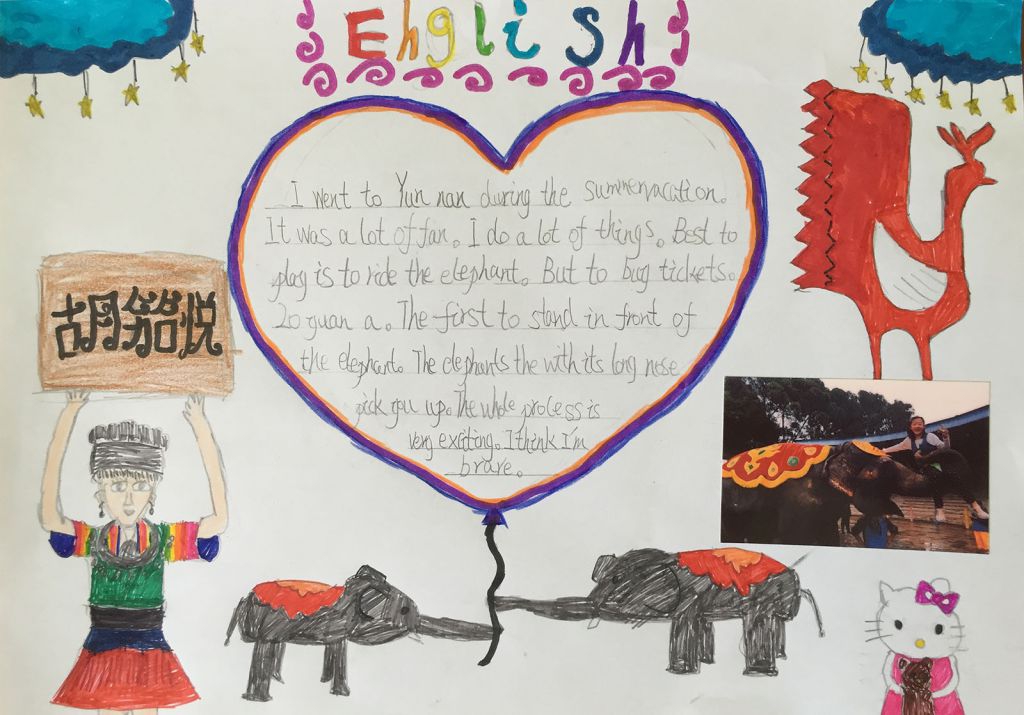 English
I went to Yun nan during the summervacation.
It was a lot of fan. I do a lot of things. Best to
play is to ride the elephant. But to bug tickets.
20 yuan a. The first to stand in front of
the elephant. The elephants the with its long nose
pick you up. The whole process is
very exciting. I think I'm
brave.
胡岧悦